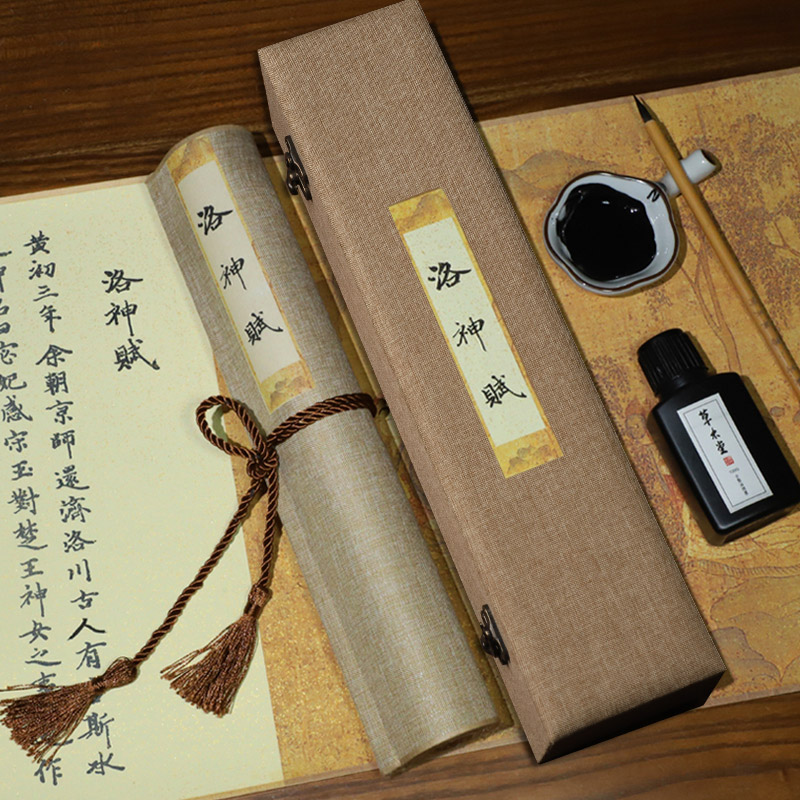 洛神賦
黄初三年余朝京師還濟洛川古人有斯水
神名曰宓妃感宋玉對楚王神女之事作
洛神賦
洛神賦
草木堂